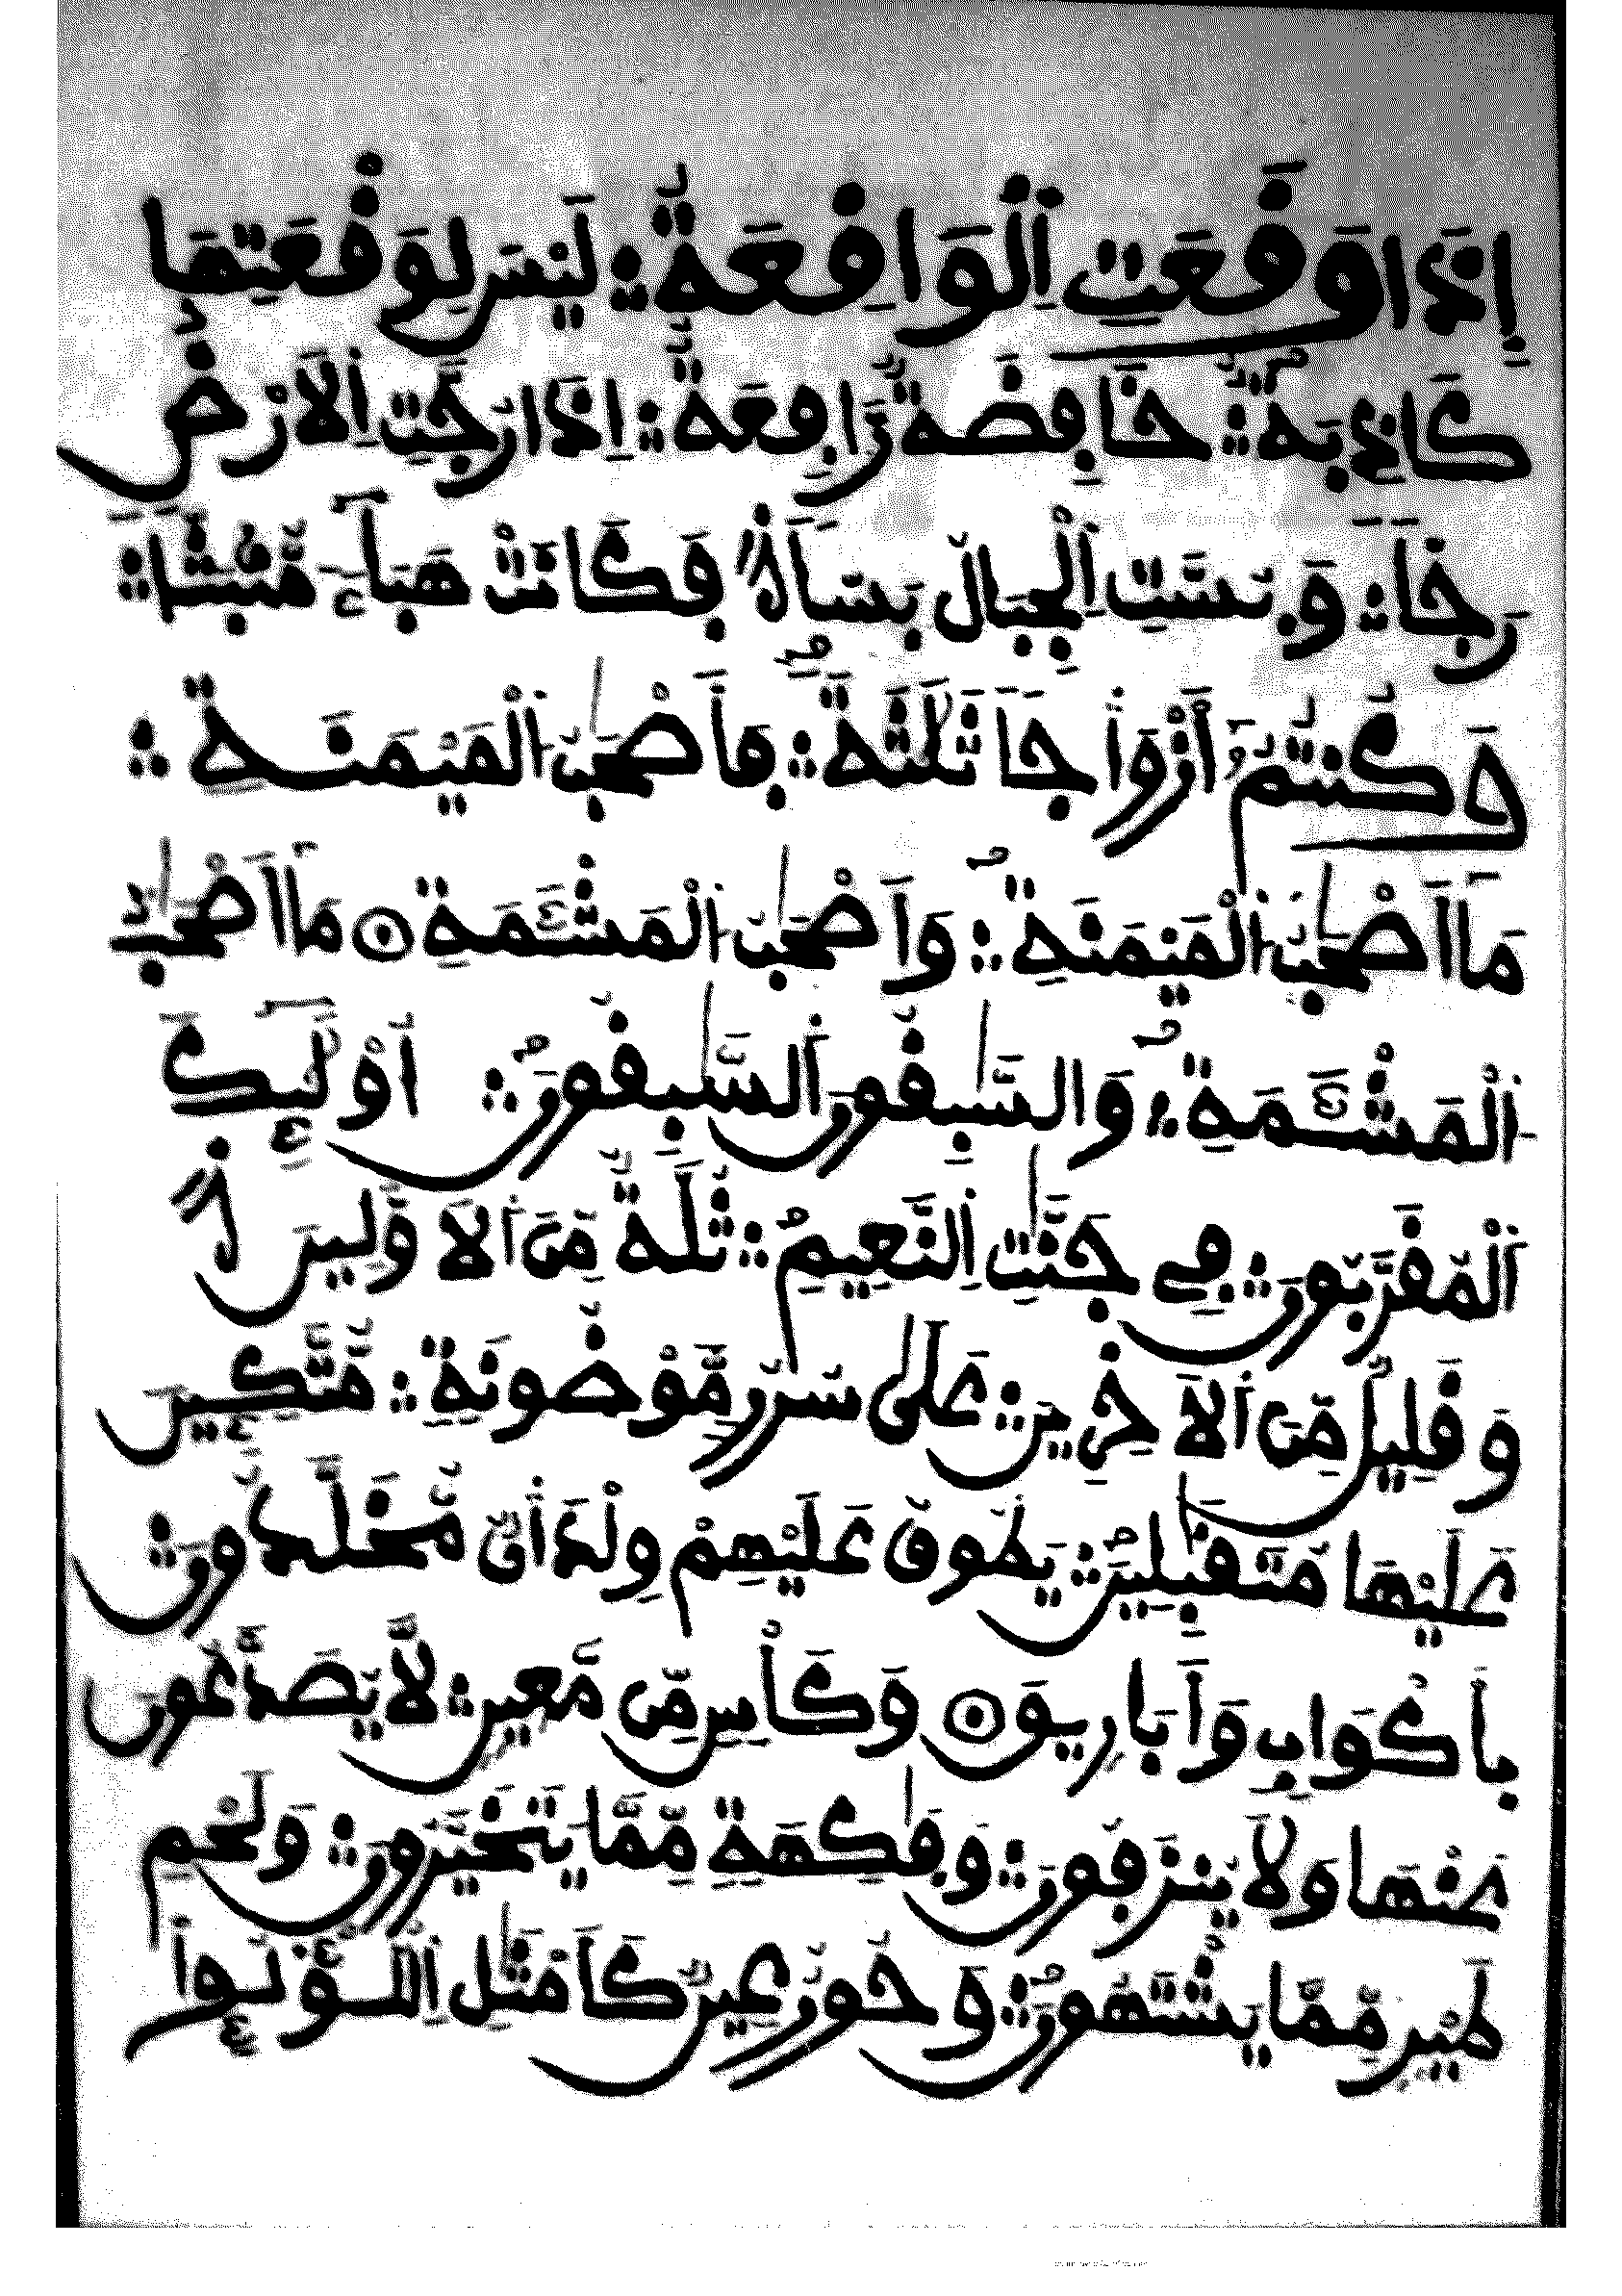 إِذَا وَقَعَتِ اِلْوَاقِعَةُ ۝ لَيْسَ لِوَقْعَتِهَا
كَاذِبَةٌ ۝ خَافِضَةٌ رَّافِعَةٌ ۝ إِذَا رُجَّتِ اِلَارْضُ
رَجّاٗ ۝ وَبُسَّتِ اِلْجِبَالُ بَسّاٗ فَكَانَتْ هَبَآءٗ مُّنۢبَثّاٗ ۝
وَكُنتُمُۥٓ أَزْوَٰجاٗ ثَلَٰثَةٗ ۝ فَأَصْحَٰبُ اُلْمَيْمَنَةِ ۝
مَآ أَصْحَٰبُ اُلْمَيْمَنَةِ ۝ وَأَصْحَٰبُ اُلْمَشْـَٔمَةِ ۝ مَآ أَصْحَٰبُ
اُلْمَشْـَٔمَةِ ۝ وَالسَّٰبِقُونَ اَلسَّٰبِقُونَ ۝ أُوْلَٰٓئِكَ
اَلْمُقَرَّبُونَ ۝ فِے جَنَّٰتِ اِلنَّعِيمِ ۝ ثُلَّةٌ مِّنَ اَلَاوَّلِينَ
وَقَلِيلٌ مِّنَ اَلَاخِرِينَ ۝ عَلَىٰ سُرُرٖ مَّوْضُونَةٖ ۝ مُّتَّكِـِٕينَ
عَلَيْهَا مُتَقَٰبِلِينَ ۝ يَطُوفُ عَلَيْهِمْ وِلْدَٰنٌ مُّخَلَّدُونَ ۝
بِأَكْوَابٖ وَأَبَارِيقَ ۝ وَكَأْسٖ مِّن مَّعِينٖ ۝ لَّا يُصَدَّعُونَ
عَنْهَا وَلَا يُنزَفُونَ ۝ وَفَٰكِهَةٖ مِّمَّا يَتَخَيَّرُونَ ۝ وَلَحْمِ
طَيْرٖ مِّمَّا يَشْتَهُونَ ۝ وَحُورٌ عِينٞ كَأَمْثَٰلِ اِللُّؤْلُوِٕ